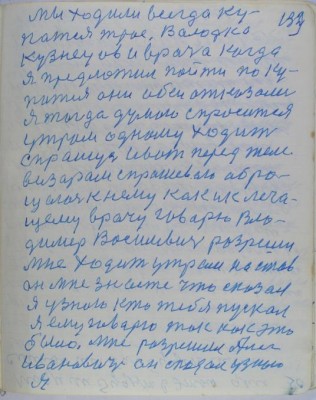 133
мы ходили всегда ку-
патся трое, Володка
Кузнецов и врача когда
я предложил пойти по ку-
патся они обеи отказали
я тогда думаю спросится
утром одному ходит
спрашуя и вот перед тем
визаром спрашеваю обро-
щаюсь к нему как к леча-
щему врачу говарю Вла-
димер Восильевич розреши
мне ходит утром на став
он мне знаете что сказал
я узнаю кто тебя пускал
я ему говарю так как это
было, мне розрешил Алек
Иванович он сказал узнаю
я